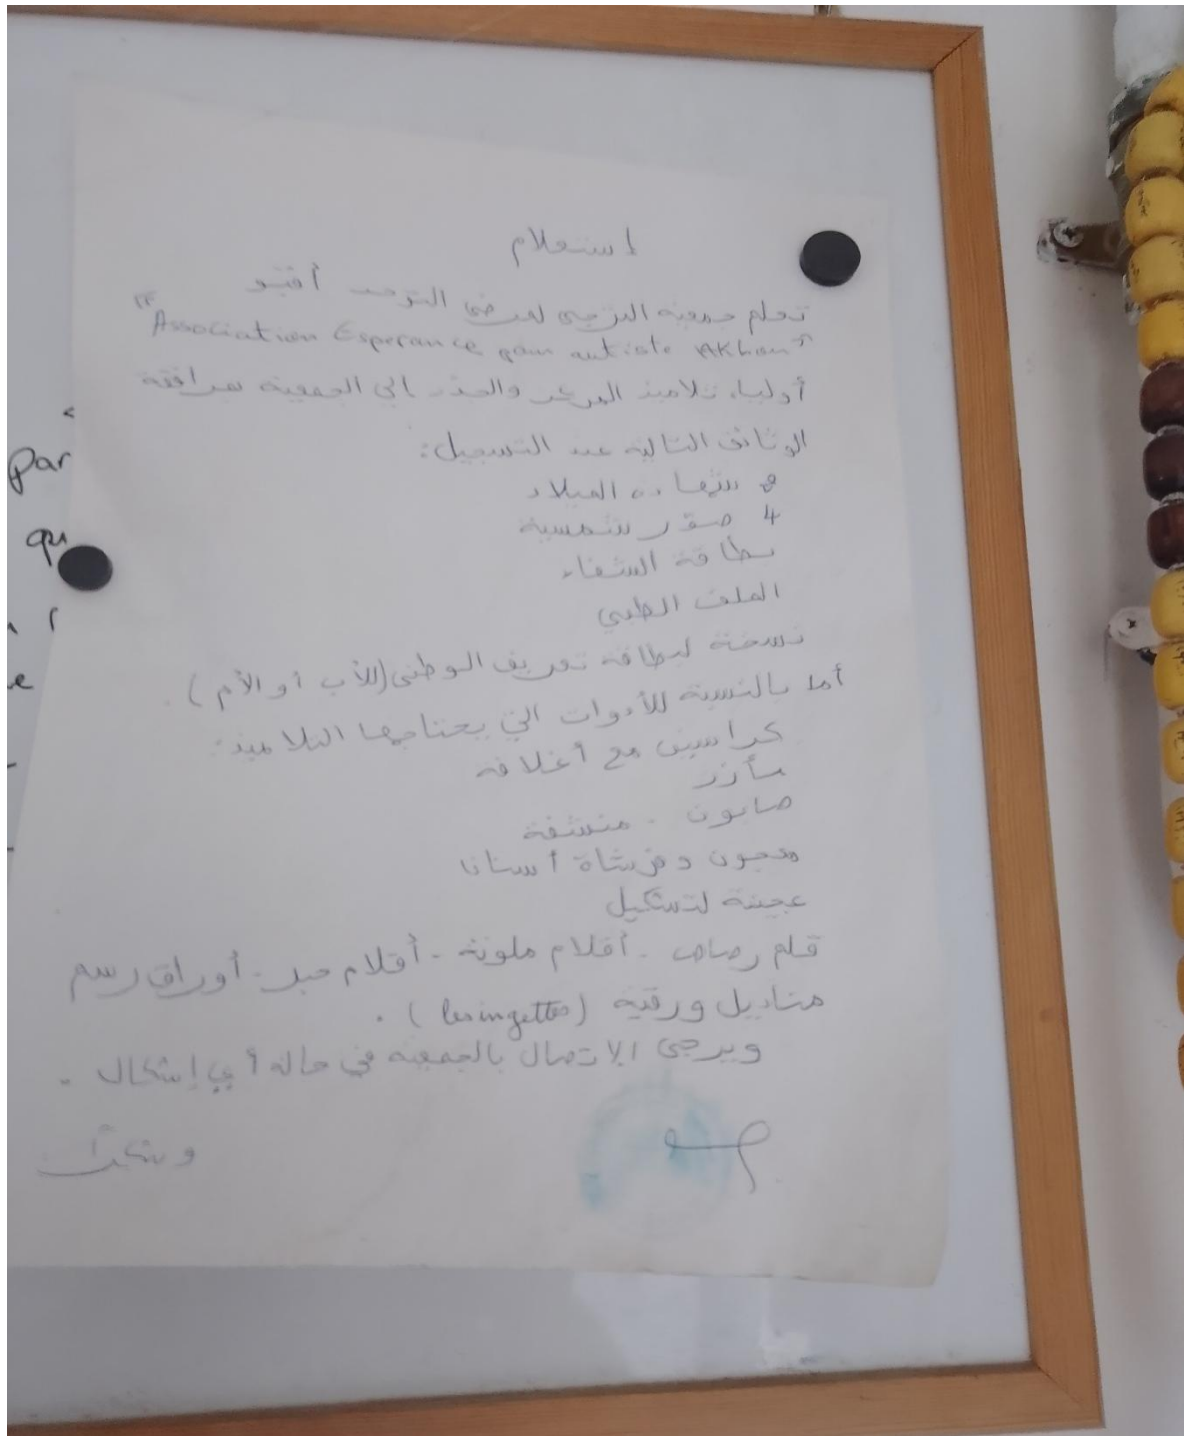 استعلام
تعلم جمعية الترجي لمرضى التوحد أقبو
"Association Esperance pour autiste Akbou"
أولياء تلاميذ المركز إلى الجمعية مرافقة
الوثائق التالية عند التسجيل:
شهادة الميلاد
4 صور شمسية
بطاقة الشفاء
الملف الطبي
نسخة لبطاقة تعريف الوطني (للأب أو الأم).
أما بالنسبة للأدوات التي يحتاجها التلاميذ:
كراسين مع أغلافة
مأزر
صابون - منشفة
معجون وفرشاة أسنان
عجينة لتشكيل
قلم رصاص - أقلام ملونة - أقلام حبر - أوراق رسم
مناديل ورقية (lesingettes).
ويرجى الاتصال بالجمعية في حالة أي إشكال.
وشكرًا
par
qu